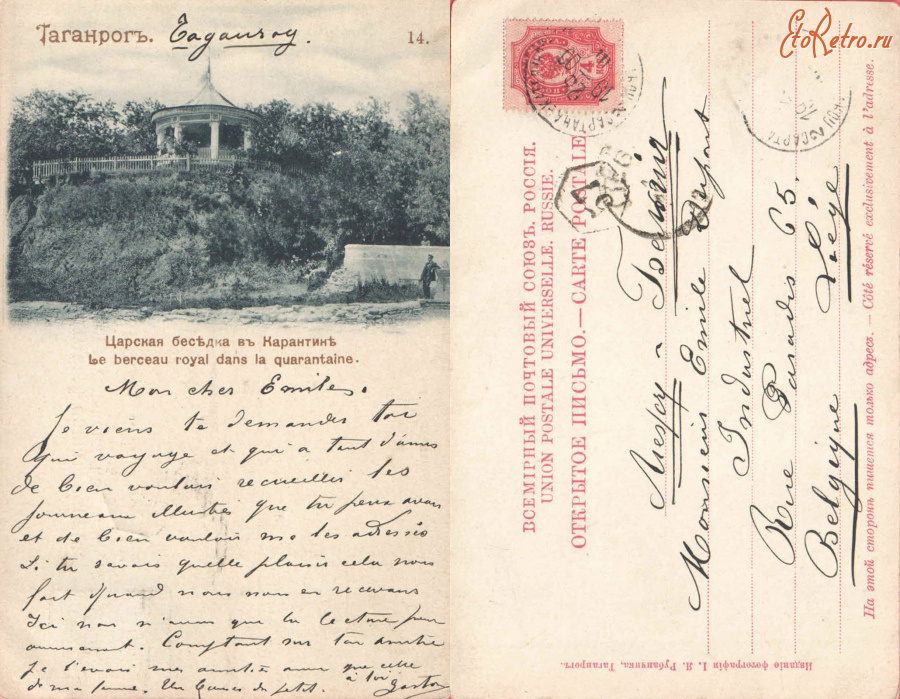 Таганрогъ. Taganrog.
14.
Царская бесѣдка въ Карантинѣ
Le berceau royal dans la quarantaine.
Mon cher Emile.
Je viens te demander toi
qui voyage et qui a tant d'amis
de bien vouloir recueillir les
journeaux illustrés que tu peux avoir
et de bien vouloir me les adresser
Si tu savais quelle plaisir cela nous
fait quand nous nous en recevons
Ici nous n'avons que la lecture pour
amusement. Comptant sur ton amitié
Je t'envoi mes amitiés ainsi que celle
de ma femme. Un baiser du petit. à toi Gaston
EtoRetro.ru
ВСЕМІРНЫЙ ПОЧТОВЫЙ СОЮЗЪ. РОССІЯ.
UNION POSTALE UNIVERSELLE. RUSSIE.
ОТКРЫТОЕ ПИСЬМО.—CARTE POSTALE
Monsieur Emile Dufont
Industriel
Rue Paradis 65.
Liége
Belgique
На этой сторонѣ пишется только адресъ. — Côté réservé exclusivement à l'adresse.
Изданіе фотографіи І. Я. Рубанчика, Таганрогъ.